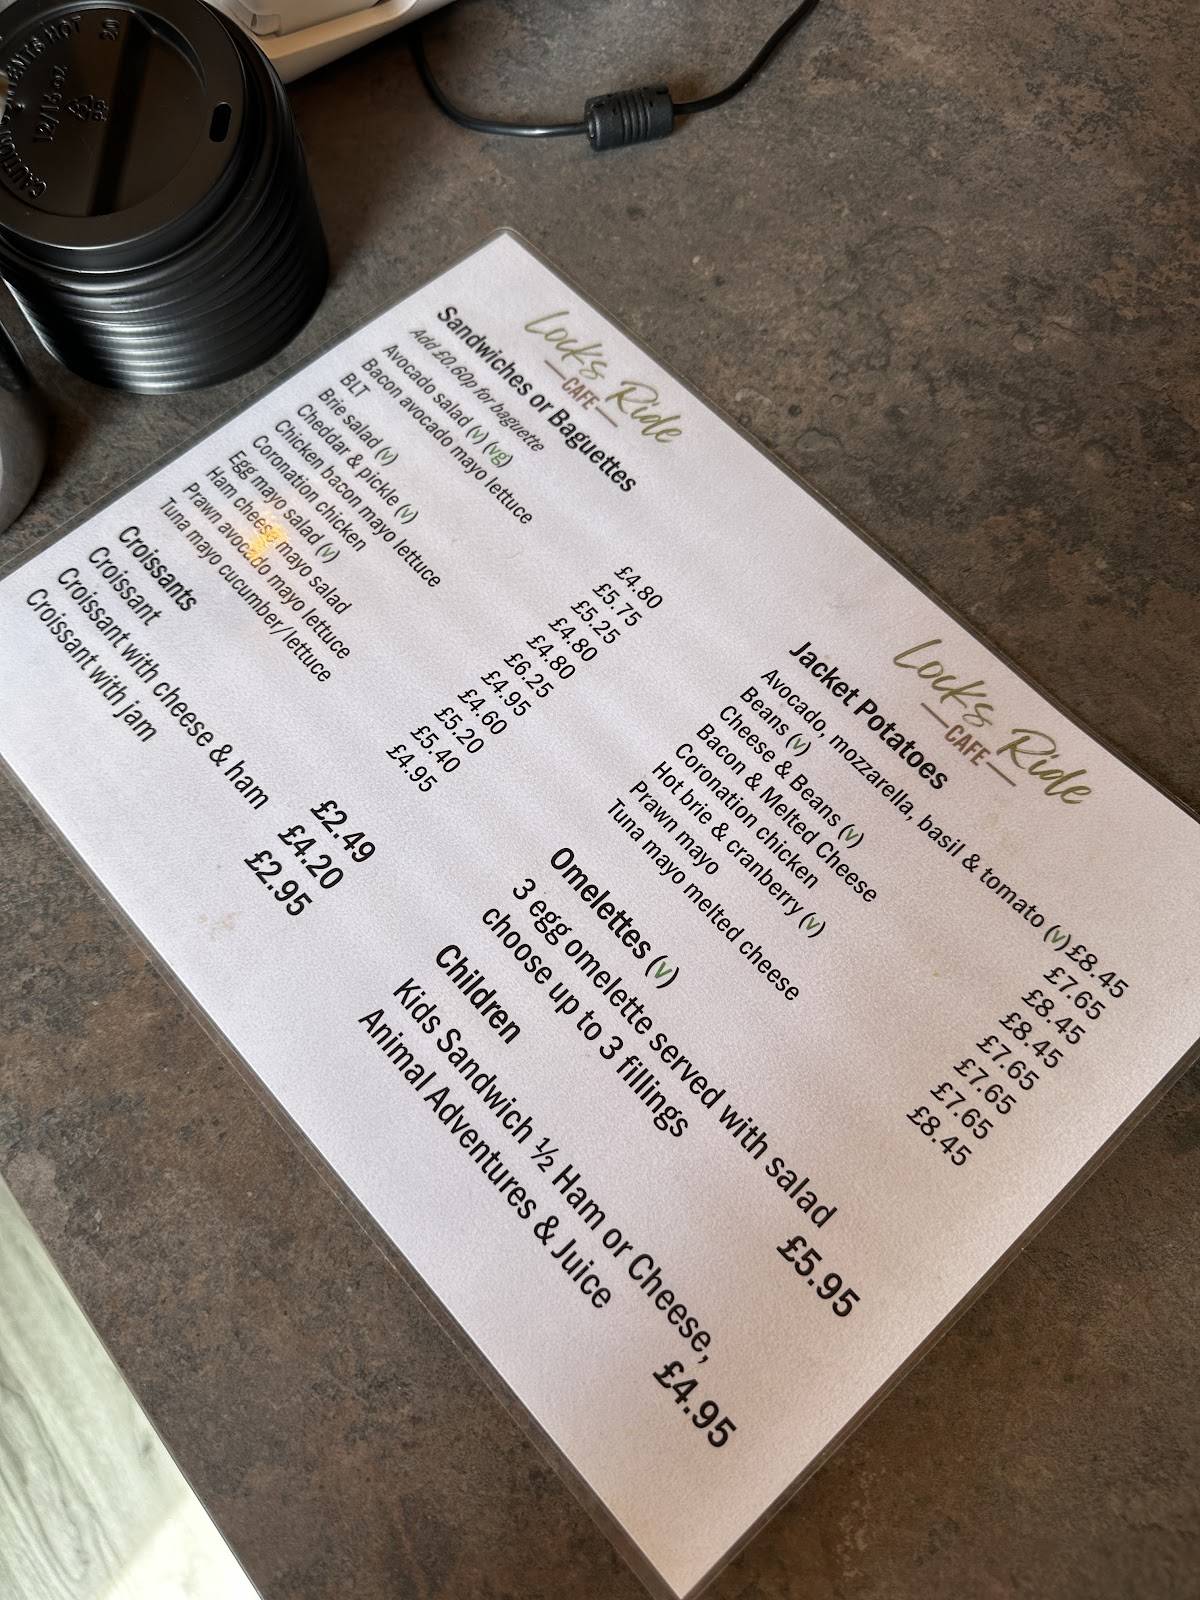 CAUTION CONTENTS HOT
12/16 oz
Locks Ride
CAFE
Sandwiches or Baguettes
Add £0.60p for baguette
Avocado salad (v) (vg) £4.80
Bacon avocado mayo lettuce £5.75
BLT £5.25
Brie salad (v) £4.80
Cheddar & pickle (v) £4.80
Chicken bacon mayo lettuce £6.25
Coronation chicken £4.95
Egg mayo salad (v) £4.60
Ham cheese mayo salad £5.20
Prawn avocado mayo lettuce £5.40
Tuna mayo cucumber/lettuce £4.95
Croissants
Croissant £2.49
Croissant with cheese & ham £4.20
Croissant with jam £2.95
Locks Ride
CAFE
Jacket Potatoes
Avocado, mozzarella, basil & tomato (v) £8.45
Beans (v) £7.65
Cheese & Beans (v) £8.45
Bacon & Melted Cheese £8.45
Coronation chicken £7.65
Hot brie & cranberry (v) £7.65
Prawn mayo £7.65
Tuna mayo melted cheese £8.45
Omelettes (v)
3 egg omelette served with salad
choose up to 3 fillings £5.95
Children
Kids Sandwich ½ Ham or Cheese,
Animal Adventures & Juice £4.95